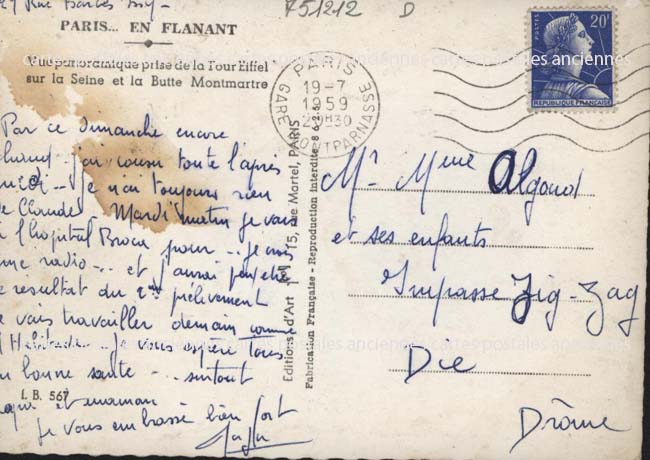 Rue Barbès
751212 D
PARIS... EN FLANANT
Vue panoramique prise de la Tour Eiffel
sur la Seine et la Butte Montmartre
Par ce dimanche encore
chaud - j'ai cousu toute l'après
midi - Je n'ai toujours rien
de Claude. Mardi matin je vais
à l'hopital Broca pour ... je crois
une radio ... et j'aurai peut être
le resultat du 2eme prélèvement
Je vais travailler demain comme
d'Habitude. Je vous espère tous
en bonne santé ... surtout
et maman
Je vous embrasse bien fort
I. B. 567
Editions d'Art 15, rue Martel, PARIS
Fabrication Française - Reproduction interdite
PARIS
19-7
1959
20H30
GARE MONTPARNASSE
POSTES
20F
REPUBLIQUE FRANÇAISE
Mr Mme Algoud
et ses enfants
Impasse Zig-Zag
Die
Drôme
cartes postales anciennes